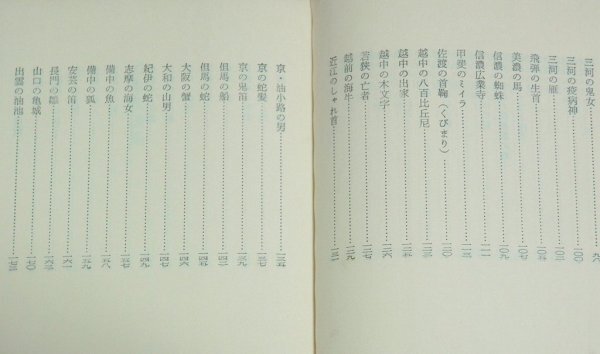 三河の鬼女
三河の疫病神……一〇〇
三河の雁……一〇二
飛騨の生首……一〇五
美濃の馬……一〇七
信濃の蜘蛛……一〇九
信濃広業寺……一一一
甲斐のミイラ……一一三
佐渡の首鞠（くびまり）……一二〇
越中の八百比丘尼……一二三
越中の出家……一二四
越中の木文字……一二六
若狭の亡者……一二七
越前の海牛……一二九
近江のしゃれ首……一三一
京・油小路の男……一三五
京の蛇髪……一三七
京の鬼笛……一三九
但馬の船……一四二
但馬の蛇……一四五
大阪の蟹……一四六
大和の山男……一四七
紀伊の蛇……一四九
志摩の海女……一五七
備中の魚……一五八
備中の狐……一五九
安芸の笛……一六一
長門の
山口の亀城……一七〇
出雲の油